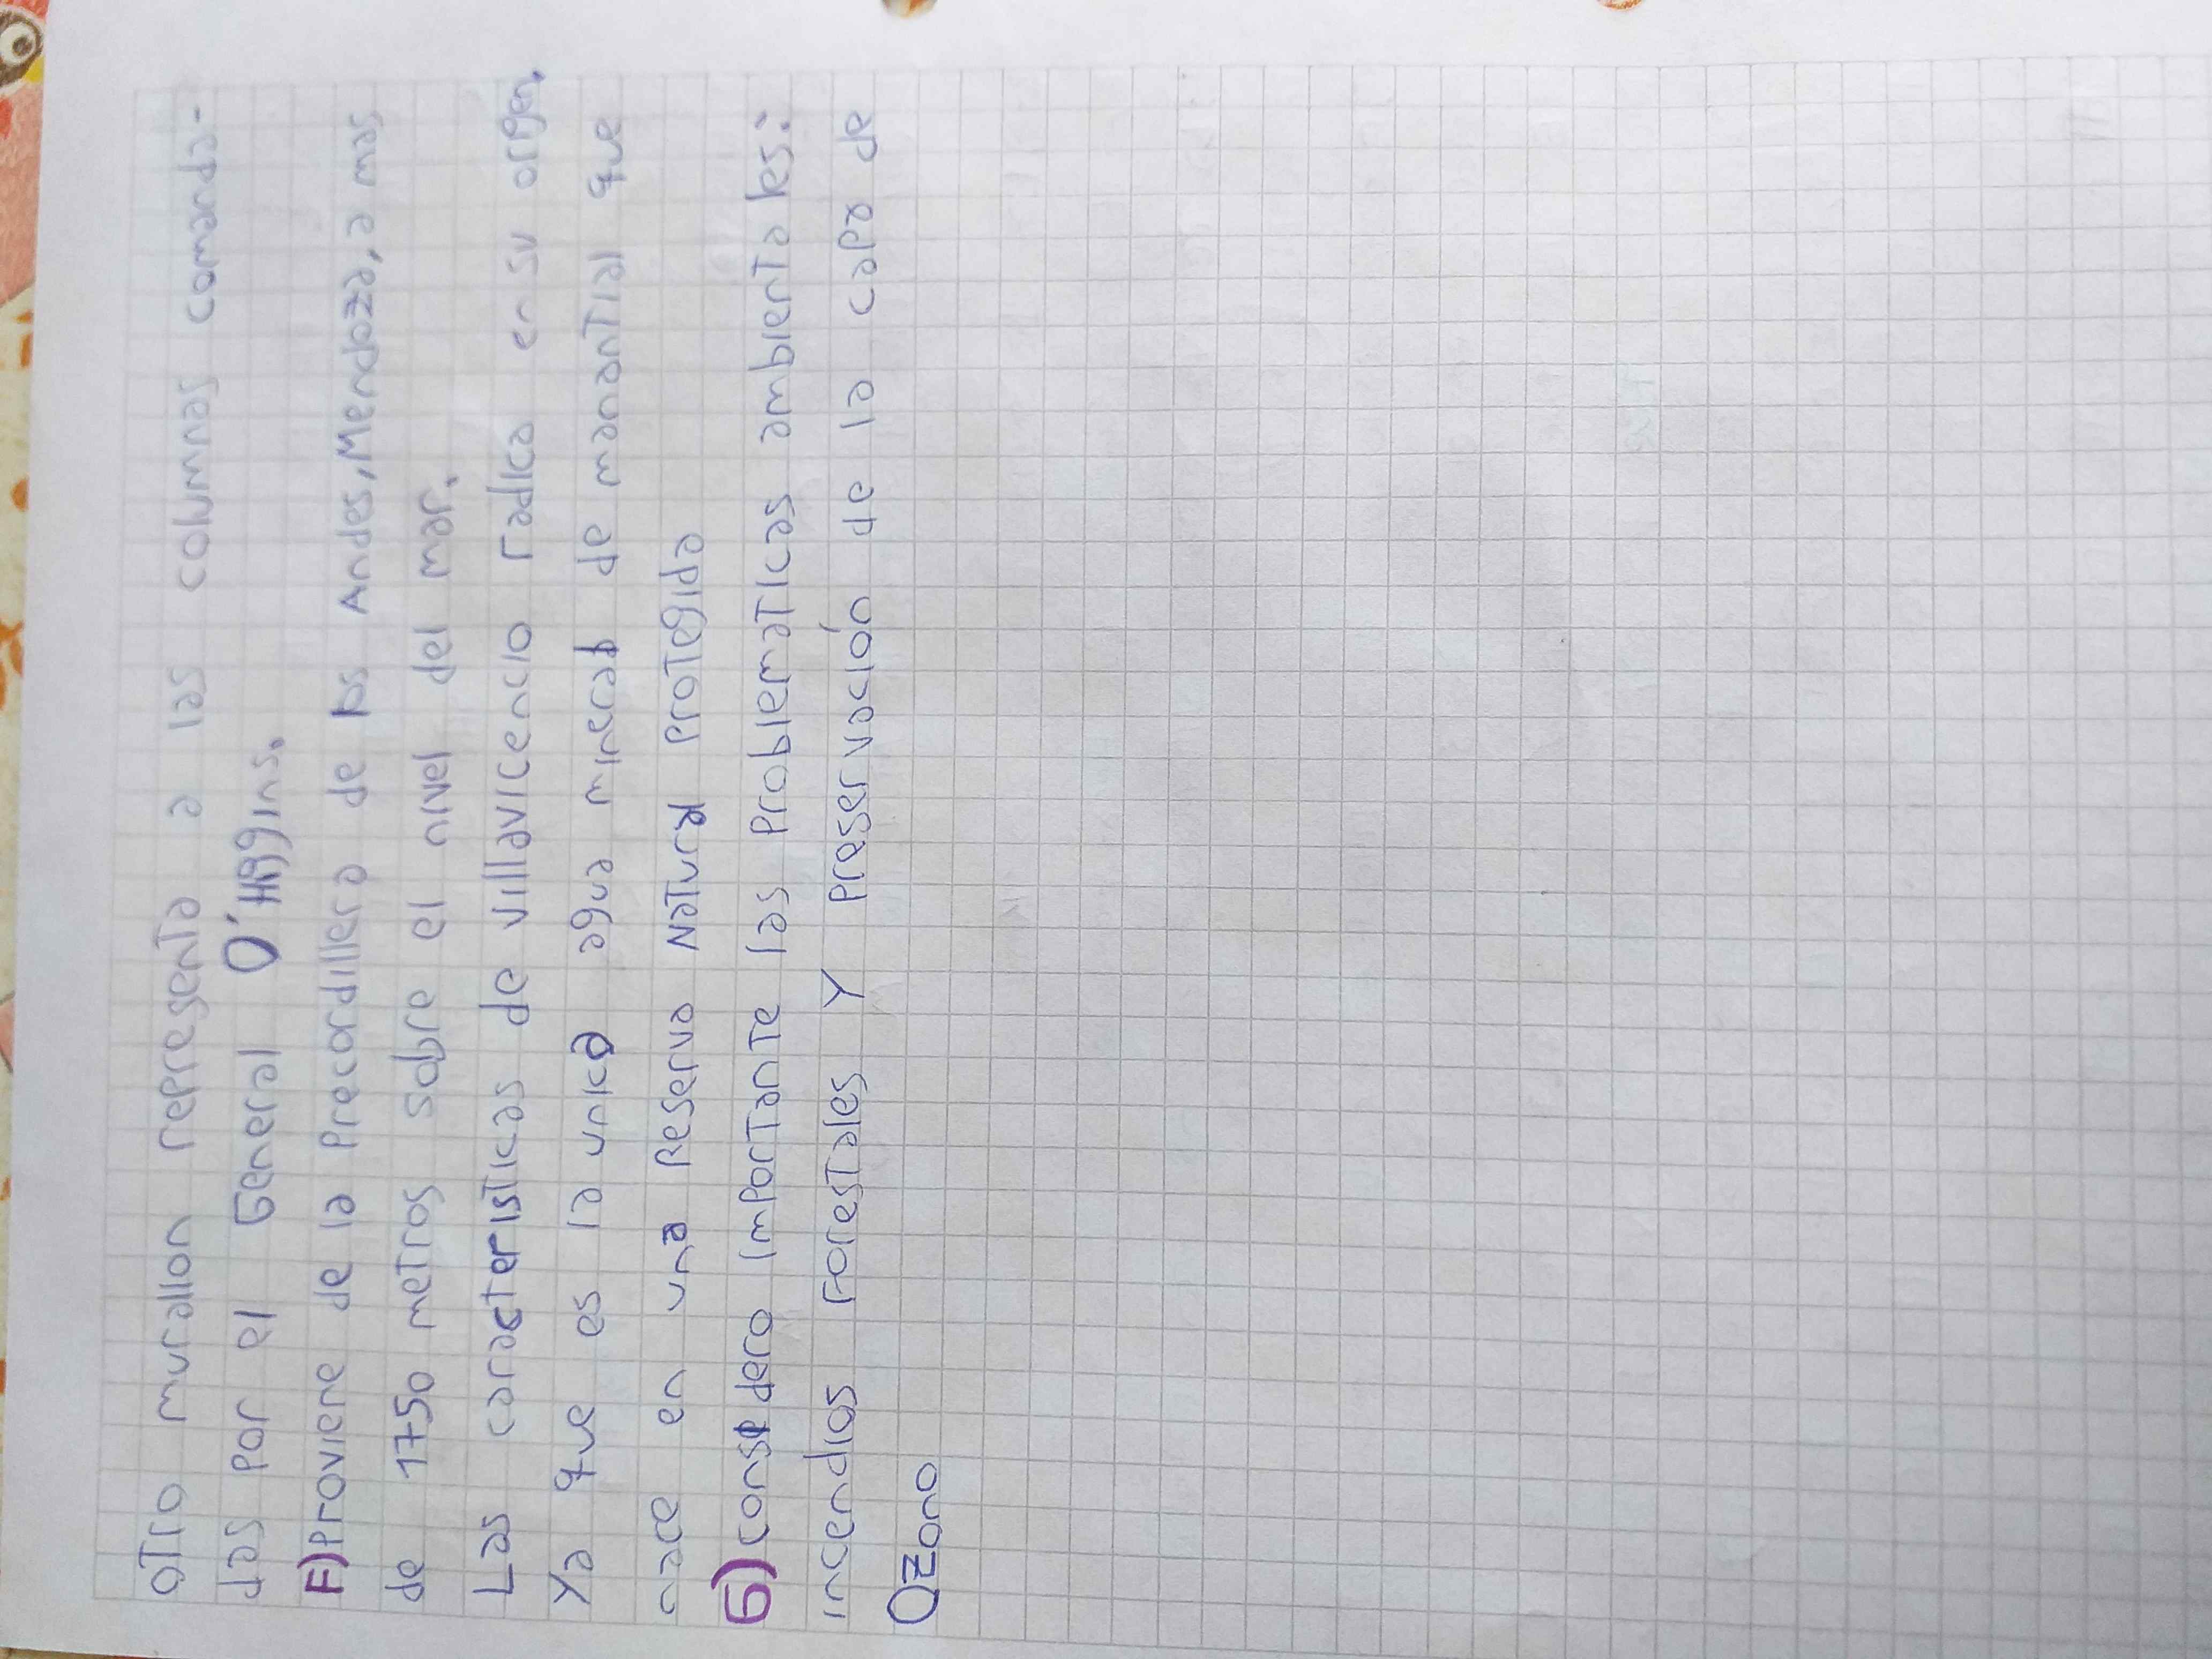 otro murallon representa a las columnas comanda-
das por el General O'Higgins.
F) Proviene de la Precordillera de los Andes, Mendoza, a mas
de 1750 metros sobre el nivel del mar.
Las caracteristicas de villavicencio radica en su origen.
Ya que es la unica agua mineral de manantial que
nace en una Reserva Natural Protegida
G) considero importante las problematicas ambientales:
incendios forestales Y preservación de la capa de
Ozono